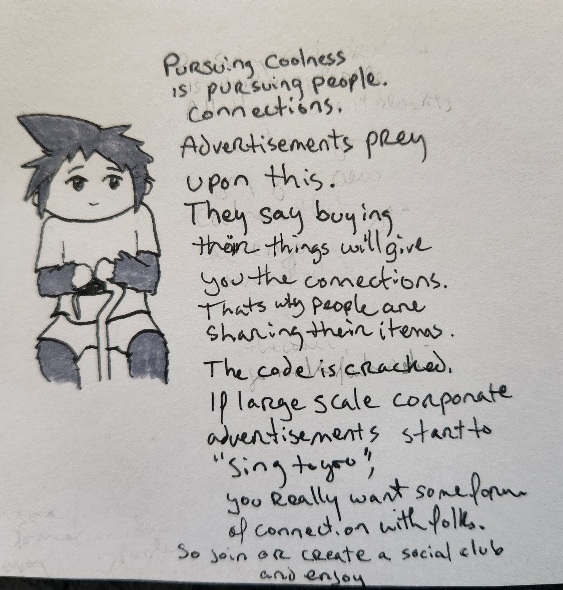 Pursuing Coolness
is pursuing people.
Connections.
Advertisements prey
upon this.
They say buying
their things will give
you the connections.
Thats why people are
sharing their items.
The code is cracked.
If large scale corporate
advertisements start to
"Sing to you",
you Really want some form
of connection with folks.
So join or create a social club
and enjoy